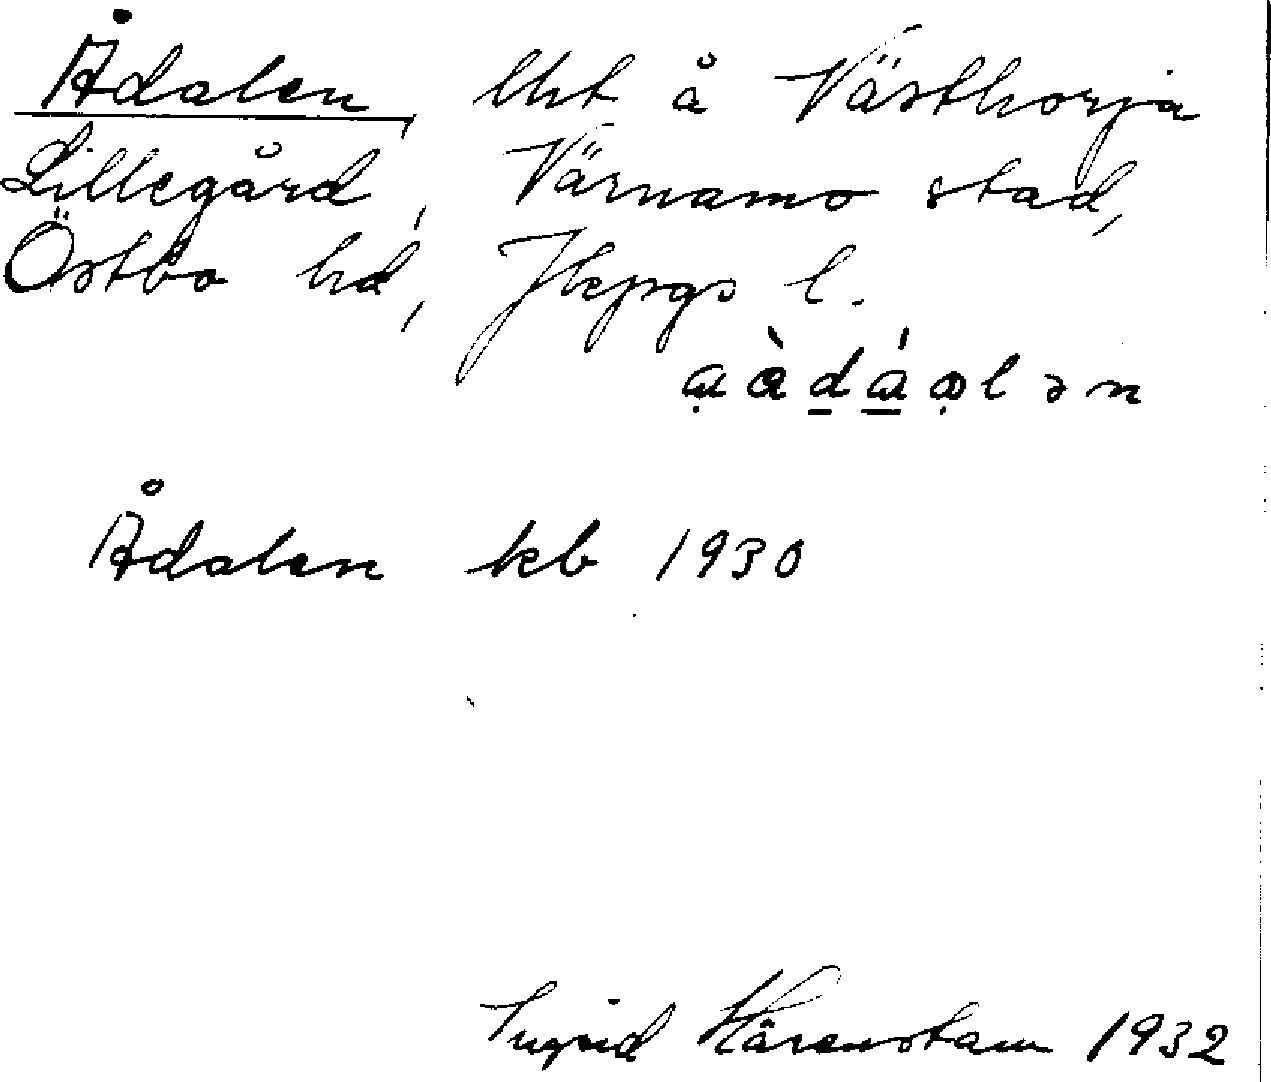 Ådalen, lht å Västhorja
Lillegård, Värnamo stad,
Östbo hd, Jkpgs l.
Ådalen kb 1930
Ingrid Härenstam 1932